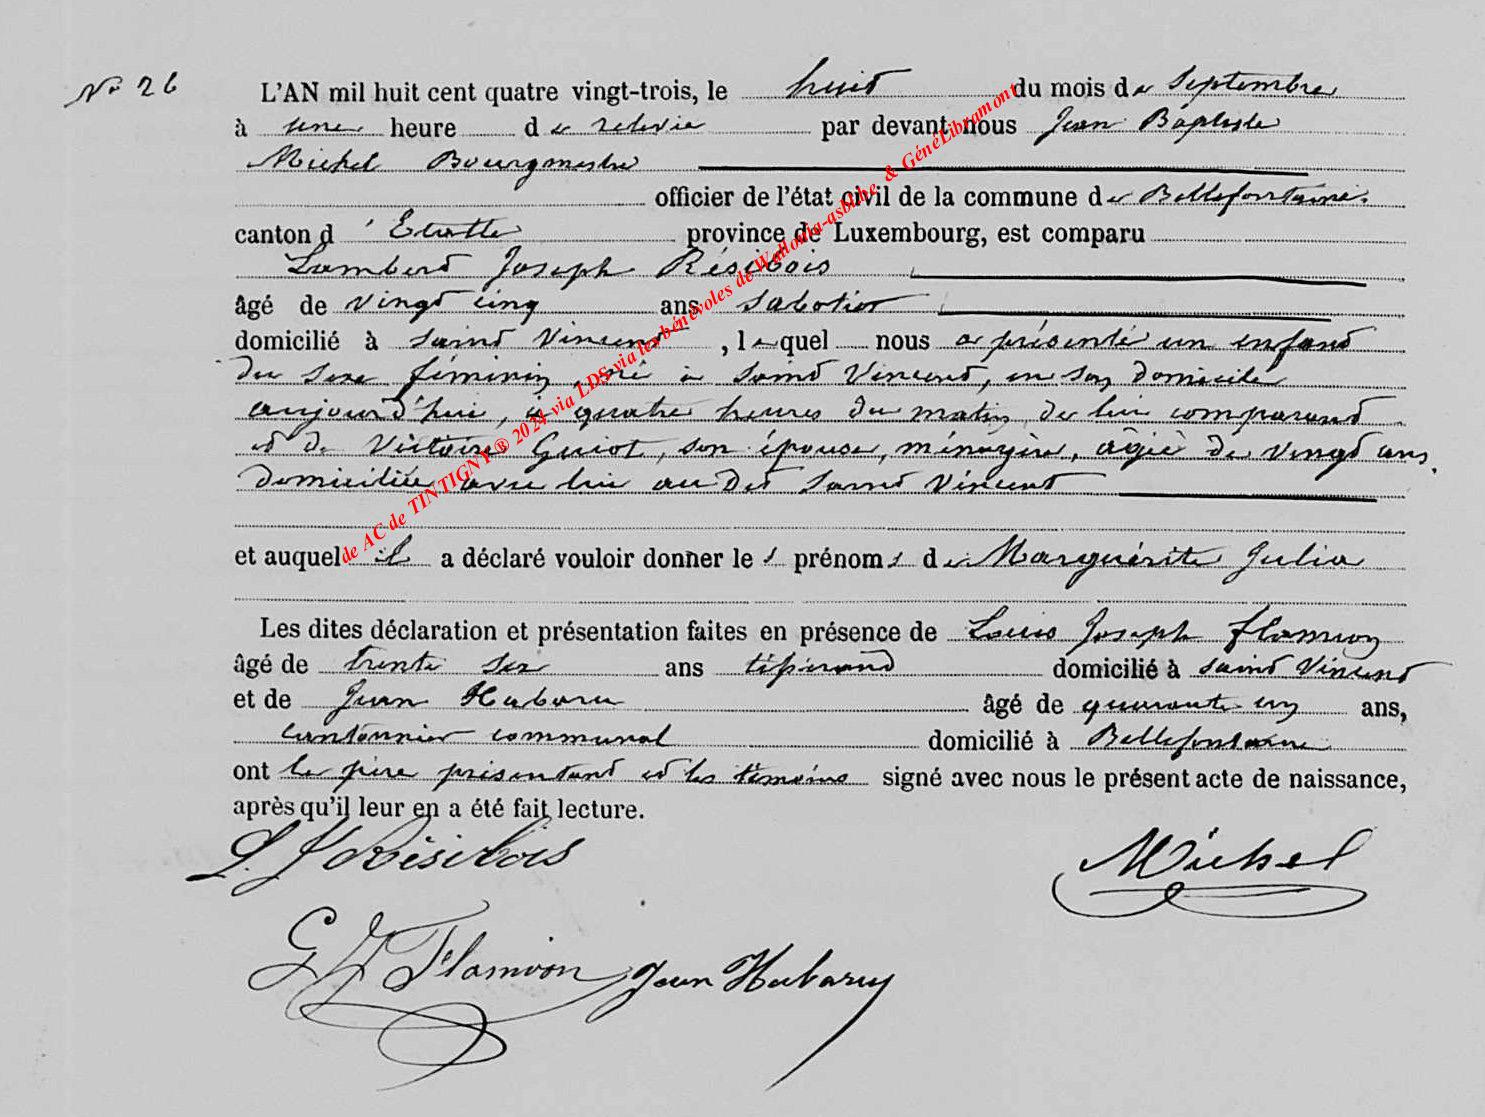 N° 26
L'AN mil huit cent quatre vingt-trois, le huit du mois de Septembre
à une heure de relevée par devant nous Jean Baptiste
Michel Bourgmestre
officier de l'état civil de la commune de Bellefontaine
canton d'Etalle province de Luxembourg, est comparu
Lambert Joseph Résibois
âgé de vingt cinq ans sabotier
domicilié à Saint Vincent, lequel nous a présenté un enfant
du sexe féminin, né à Saint Vincent, en son domicile
aujourd'hui, à quatre heures du matin, de lui comparant
et de Victoire Guiot, son épouse, ménagère, âgée de vingt ans,
domiciliée avec lui au dit Saint Vincent
et auquel il a déclaré vouloir donner les prénoms de Marguérite Julia
Les dites déclaration et présentation faites en présence de Louis Joseph Flamion
âgé de trente six ans domicilié à Saint Vincent
et de Jean Habaru âgé de quarante un ans,
cantonnier communal domicilié à Bellefontaine
ont le père présentant et les témoins signé avec nous le présent acte de naissance,
après qu'il leur en a été fait lecture.
L. J. Résibois
Michel
Flamion Jean Habaru
de AC de TINTIGNY ® 2024 via LDS via les bénévoles de Wallonia-asbl.be & GénéLibramont